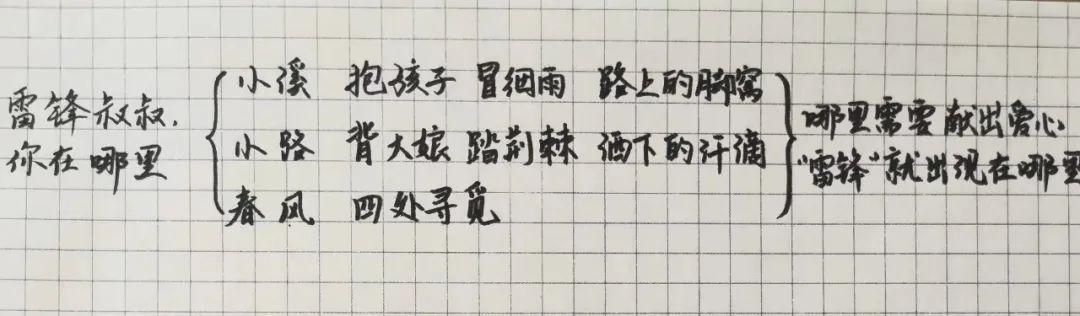 雷锋叔叔,
你在哪里
小溪 抱孩子 冒细雨 路上的脚窝
小路 背大娘 踏荆棘 洒下的汗滴
春风 四处寻觅
哪里需要献出爱心
"雷锋"就出现在哪里